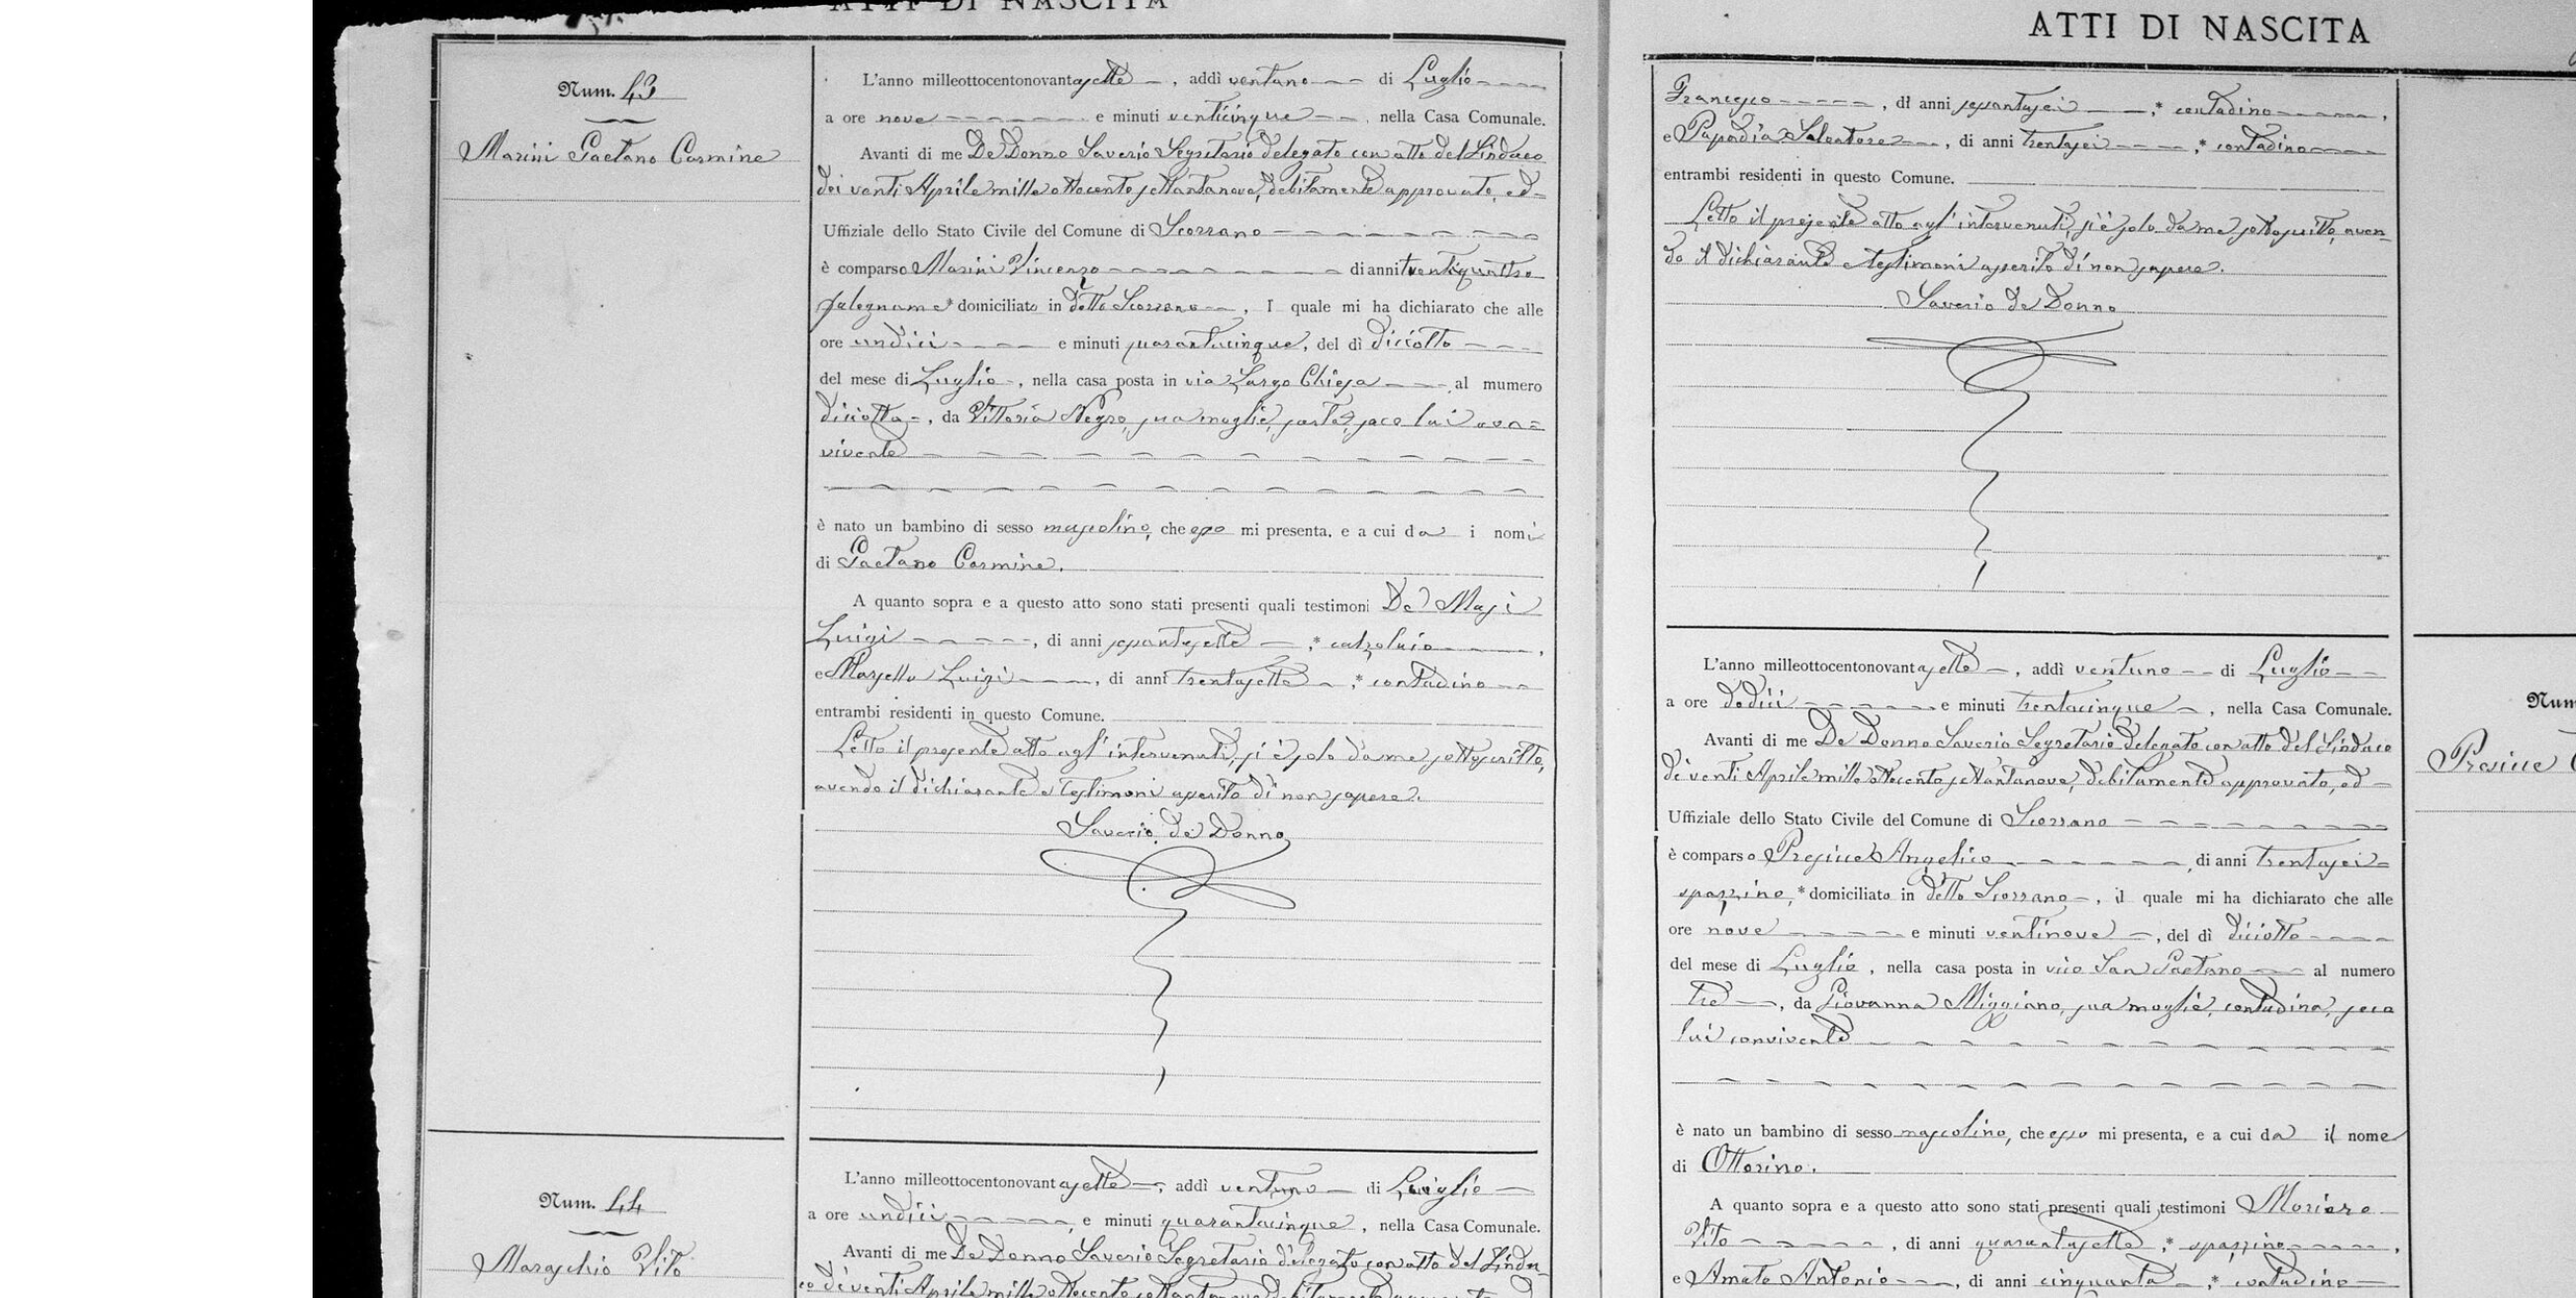 ATTI DI NASCITA
Num. 43
Marini Gaetano Carmine
L'anno milleottocentonovantasette, addì ventuno di Luglio
a ore nove e minuti venticinque, nella Casa Comunale.
Avanti di me De Donno Saverio Segretario delegato con atto del Sindaco
dei venti Aprile mille ottocento settantanove, debitamente approvato, ed
Uffiziale dello Stato Civile del Comune di Scorrano
è comparso Marini Vincenzo di anni ventiquattro
falegname * domiciliato in detto Scorrano, I quale mi ha dichiarato che alle
ore undici e minuti quarantacinque, del dì diciotto
del mese di Luglio, nella casa posta in via Largo Chiesa al mumero
diciotto, da Vittoria Negro, sua moglie, sarta, seco lui con=
vivente
è nato un bambino di sesso mascolino, che esso mi presenta, e a cui da i nomi
di Gaetano Carmine.
A quanto sopra e a questo atto sono stati presenti quali testimoni De Masi
Luigi, di anni sessantasette, * calzolaio,
e Marsella Luigi, di anni trentasette, * contadino
entrambi residenti in questo Comune.
Letto il presente atto agl'intervenuti, si è solo da me sottoscritto,
avendo il dichiarante e testimoni asserito di non sapere.
Saverio de Donno
Num. 44
Maraschio Vito
L'anno milleottocentonovantasette, addì ventuno di Luglio
a ore undici, e minuti quarantacinque, nella Casa Comunale.
Avanti di me De Donno Saverio Segretario delegato con atto del Sinda-
co dei venti Aprile mille ottocento settantanove debitamente approvato
ATTI DI NASCITA
Francesco, di anni sessantasei, * contadino,
e Papadia Salvatore, di anni trentasei, * contadino
entrambi residenti in questo Comune.
Letto il presente atto agl'intervenuti, si è solo da me sottoscritto, aven-
do il dichiarante e testimoni asserito di non sapere.
Saverio de Donno
L'anno milleottocentonovantasette, addì ventuno di Luglio
a ore dodici e minuti trentacinque, nella Casa Comunale.
Avanti di me De Donno Saverio Segretario delegato con atto del Sindaco
dei venti Aprile mille ottocento settantanove, debitamente approvato, ed
Uffiziale dello Stato Civile del Comune di Scorrano
è comparso Presicce Angelico, di anni trentasei=
spazzino, * domiciliato in detto Scorrano, il quale mi ha dichiarato che alle
ore nove e minuti ventinove, del dì diciotto
del mese di Luglio, nella casa posta in vico San Gaetano al numero
tre, da Giovanna Miggiano, sua moglie, contadina, seco
lui convivente
è nato un bambino di sesso mascolino, che esso mi presenta, e a cui da il nome
di Ottorino.
A quanto sopra e a questo atto sono stati presenti quali testimoni Moriero
Vito, di anni quarantasette, * spazzino,
e Amato Antonio, di anni cinquanta, * contadino
Num
Presicce